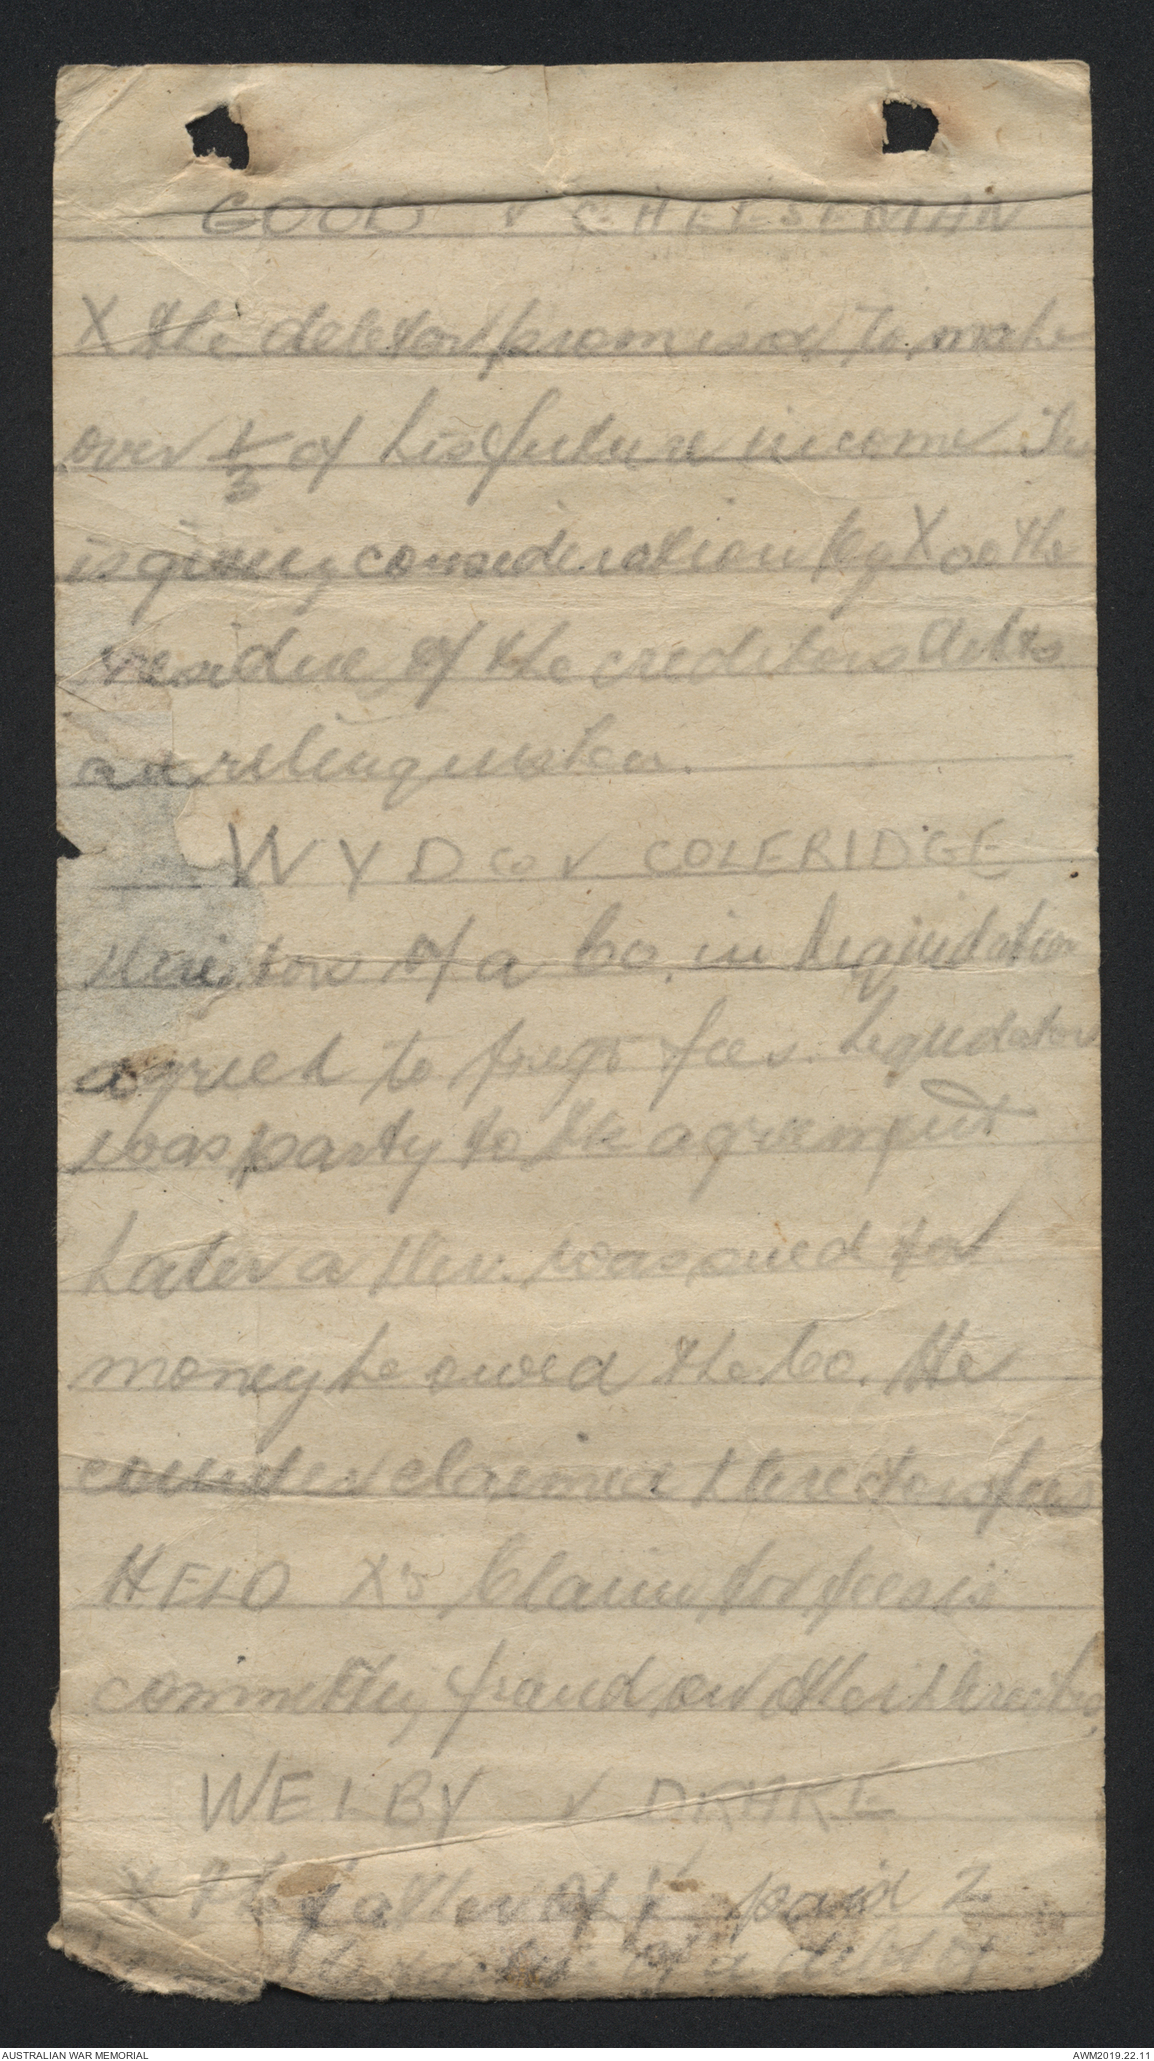 GOOD v CHEESEMAN
X the debtor promised to make
over 1/3 of his future income This
is giving consideration by X as the
residue of the creditors debts
are relinquished.
WYD Co v COLERIDGE
Directors of a Co. in liquidation
agreed to forego fees. Liquidators
was party to the agreement
Later a Dir. was sued for
money he owed the Co. He
counterclaimed Directors fees
HELD Xs Claim for fees is
committing fraud on other Directors
WELBY v DRAKE
X the father of Y paid £
of a debt of
AUSTRALIAN WAR MEMORIAL
AWM2019.22.11